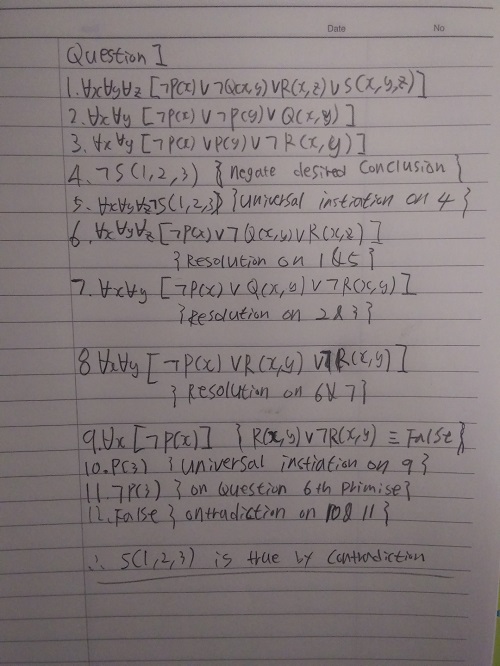 Date No
Question 1
1. ∀x∀y∀z [¬P(x) ∨ ¬Q(x,y) ∨ R(x,z) ∨ S(x,y,z)]
2. ∀x∀y [¬P(x) ∨ ¬P(y) ∨ Q(x,y)]
3. ∀x∀y [¬P(x) ∨ P(y) ∨ ¬R(x,y)]
4. ¬S(1,2,3) {negate desired conclusion}
5. ∀x∀y∀z¬S(1,2,3) {universal instiation on 4}
6. ∀x∀y∀z [¬P(x) ∨ ¬Q(x,y) ∨ R(x,z)]
{Resolution on 1&5}
7. ∀x∀y [¬P(x) ∨ Q(x,y) ∨ ¬R(x,y)]
{Resolution on 2&3}
8 ∀x∀y [¬P(x) ∨ R(x,y) ∨ ¬R(x,y)]
{Resolution on 6&7}
9. ∀x [¬P(x)] {R(x,y) ∨ ¬R(x,y) ≡ False}
10. P(3) {universal instiation on 9}
11. ¬P(3) {on Question 6th Primise}
12. False {ontradiction on 10& 11}
∴ S(1,2,3) is true by contradiction